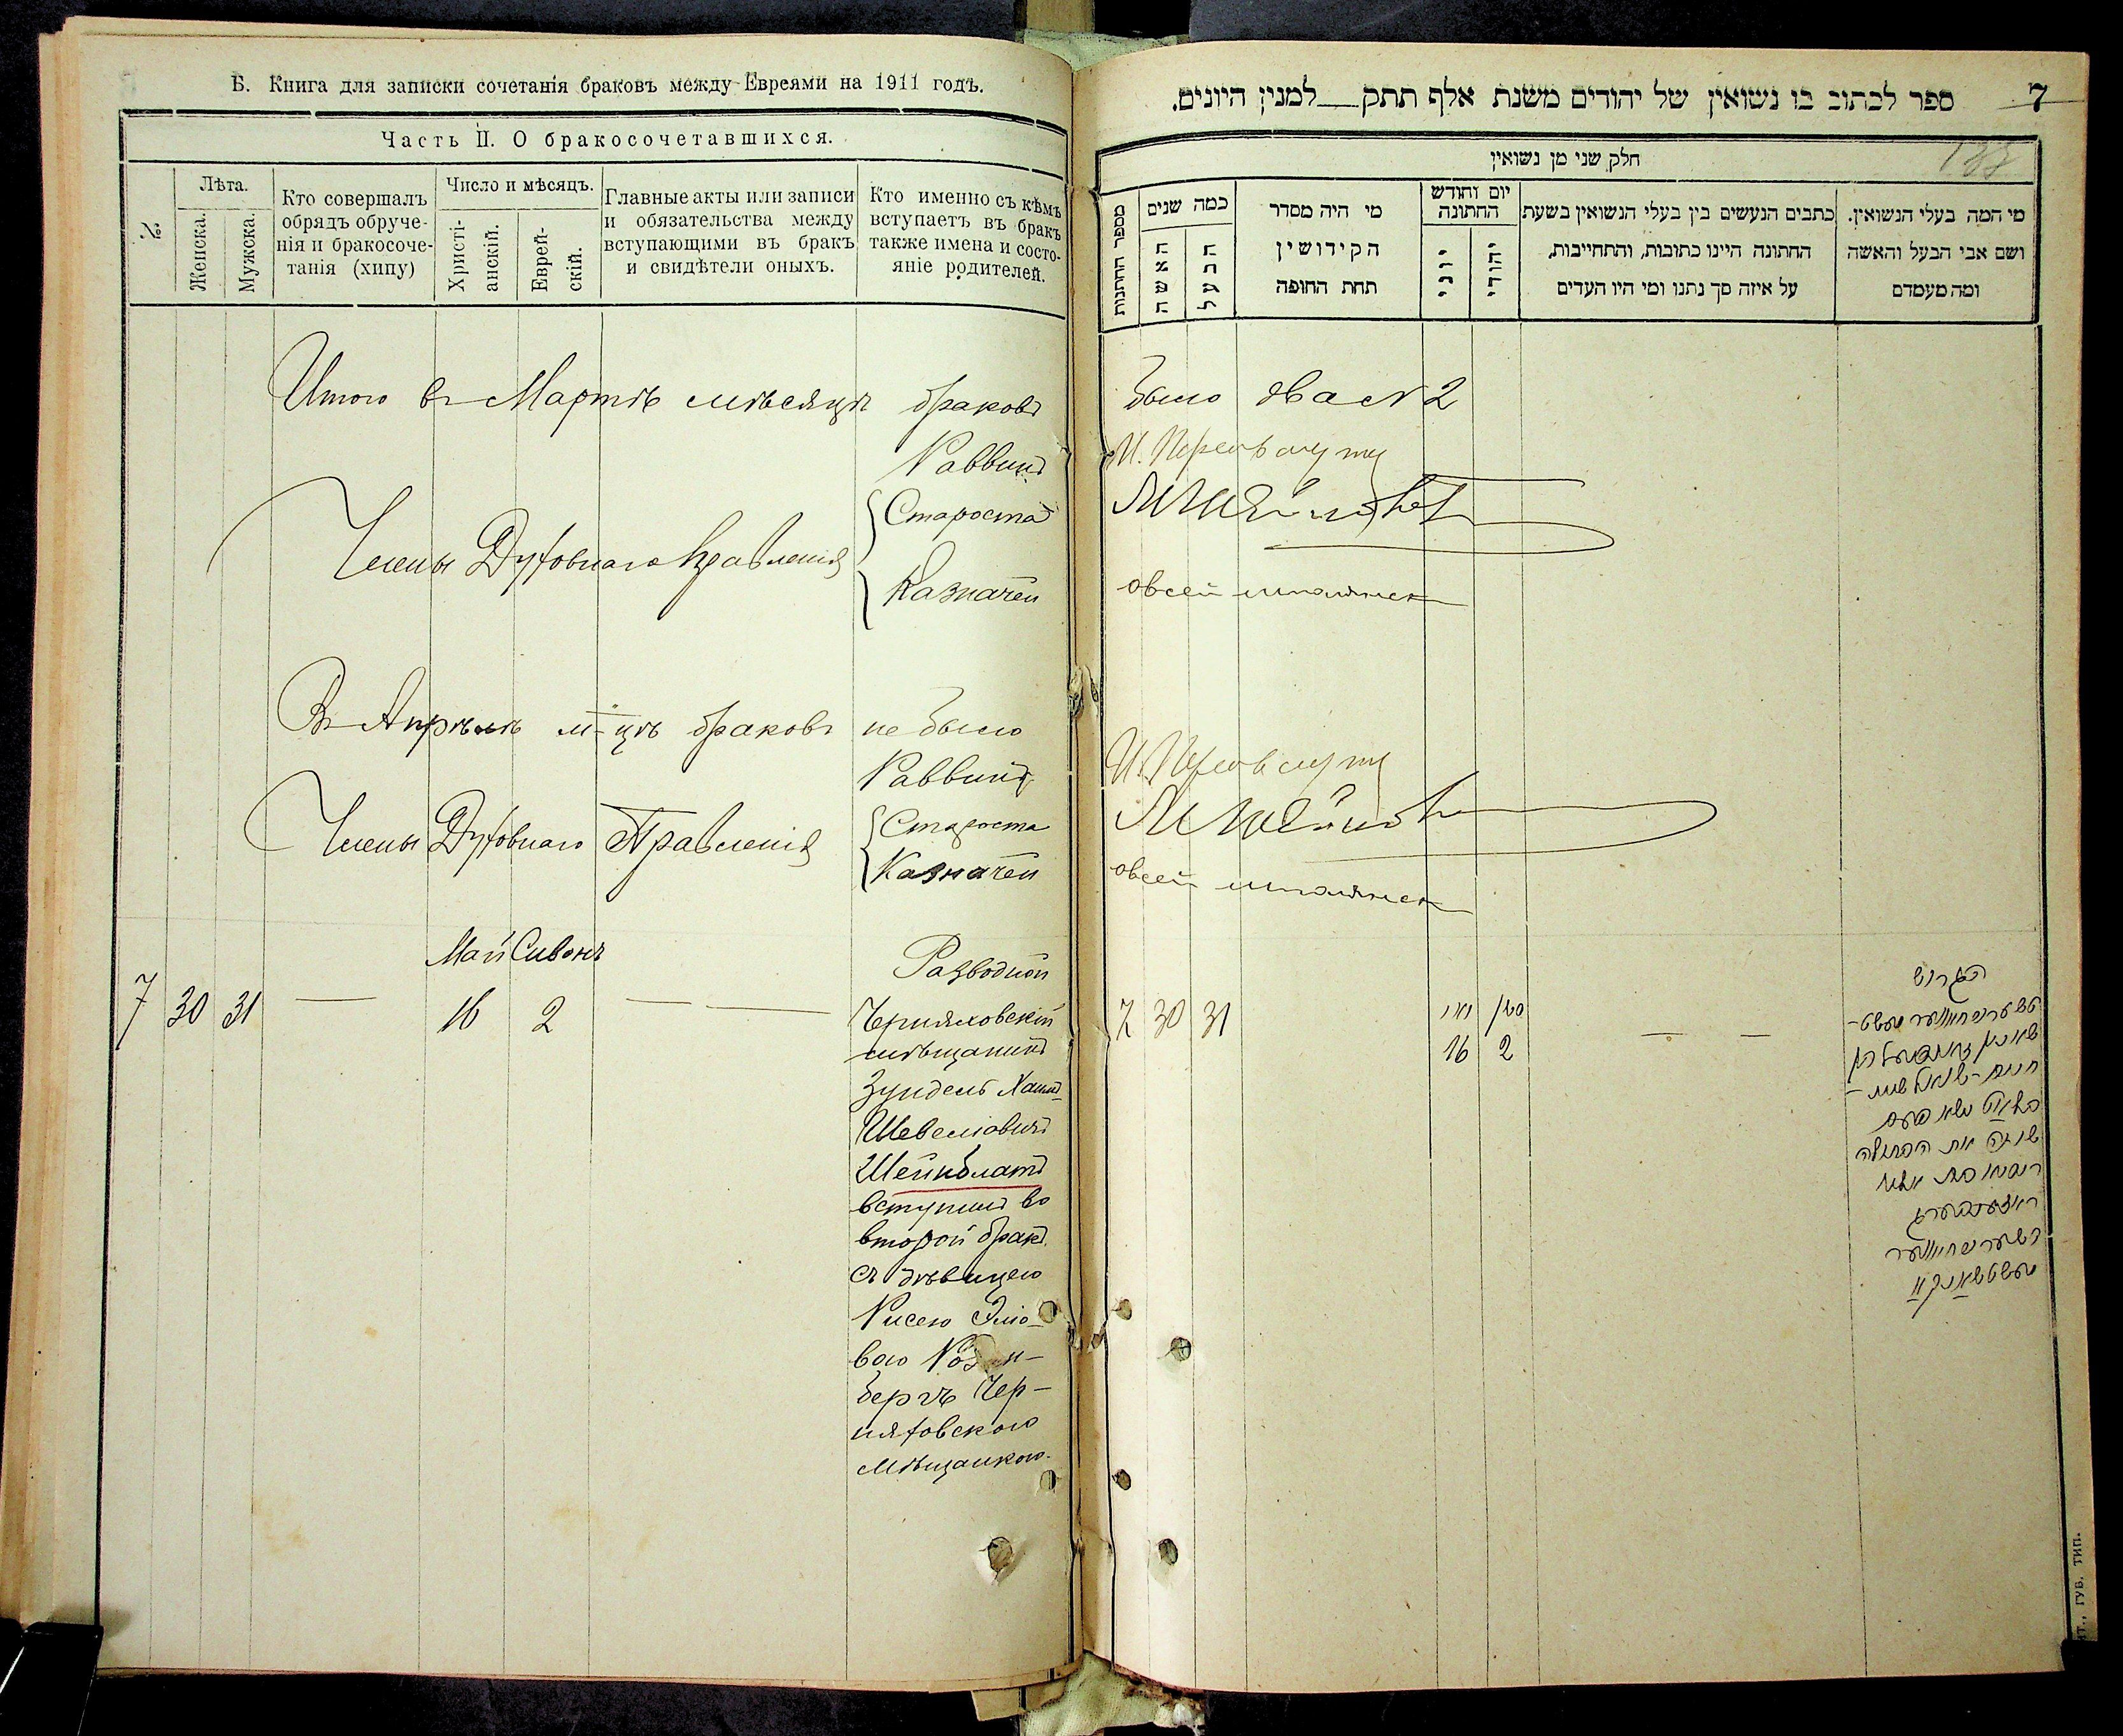 Б. Книга для записки сочетанія браковъ между Евреями на 1911 годъ.
Часть II. О бракосочетавшихся.
№
Лѣта.
Женска.
Мужска.
Кто совершалъ
обрядъ обруче-
нія и бракосоче-
танія (хипу)
Число и мѣсяцъ.
Христі-
анскій.
Еврей-
скій.
Главные акты или записи
и обязательства между
вступающими въ бракъ
и свидѣтели оныхъ.
Кто именно съ кѣмъ
вступаетъ въ бракъ
также имена и состо-
яніе родителей.
Итого въ Мартѣ мѣсяцѣ браковъ
Раввинъ
Члены Духовнаго Правленія
Староста
Казначей
Въ Апрѣлѣ м-цѣ браковъ не было
Раввинъ
Члены Духовнаго Правленія
Староста
Казначей
Май Сивонъ
7 30 31 — 16 2 — —
Разводной
Черняховскій
мѣщанинъ
Зундель Хаимъ-
Шевелювичъ
Шейнблатъ
вступилъ во
второй бракъ
съ дѣвицею
Рисею Элio-
вою Розен-
бергъ Чер-
няховскою
мѣщанкою.
7
ספר לכתוב בו נשואין של יהודים משנת אלף תתק למנין היונים.
חלק שני מן נשואין
מספר החתנות
כמה שנים
האשה
הבעל
מי היה מסדר
הקידושין
תחת החופה
יום וחודש
החתונה
יוני
יהודי
כתבים הנעשים בין בעלי הנשואין בשעת
החתונה היינו כתובות, והתחייבות,
על איזה סך נתנו ומי היו העדים
מי המה בעלי הנשואין.
ושם אבי הבעל והאשה
ומה מעמדם
было два №2
овсей
овсей
7 30 31
מאי סיון
16 2 — —
הגרוש
שנית את הבתולה
ראזענבערג
ГУБ. ТИП.